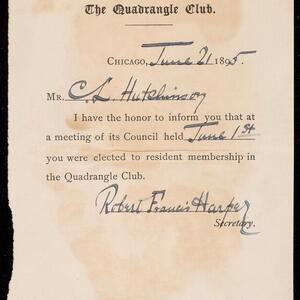 The Quadrangle Club.
Chicago, June 21 1895.
Mr. C. L. Hutchinson
I have the honor to inform you that at
a meeting of its Council held June 1st
you were elected to resident membership in
the Quadrangle Club.
Robert Francis Harper
Secretary.